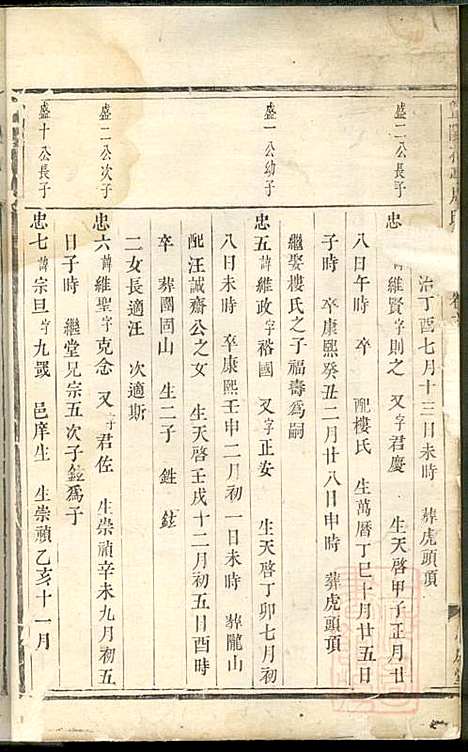 治丁酉七月十三日未時　葬虎頭頂
盛二公長子
忠　諱維賢字則之　又字君慶　生天啓甲子正月廿
八日午時　卒　配樓氏　生萬曆丁巳十月廿五日
子時　卒康熙癸丑二月廿八日申時　葬虎頭頂
繼娶樓氏之子福壽爲嗣
盛一公幼子
忠五諱維政字裕國　又字正安　生天啓丁卯七月初
八日未時　卒康熙壬申二月初一日未時　葬隴山
配汪誠齋公之女　生天啓壬戌十二月初五日酉時
卒　葬團固山　生二子　鉎　鉉
二女長適汪　次適斯
盛二公次子
忠六諱維聖字克念　又字君佐　生崇禎辛未九月初五
日子時　繼堂兄宗五次子鉉爲子
盛十公長子
忠七諱宗旦字九嵗　邑庠生　生崇禎乙亥十一月